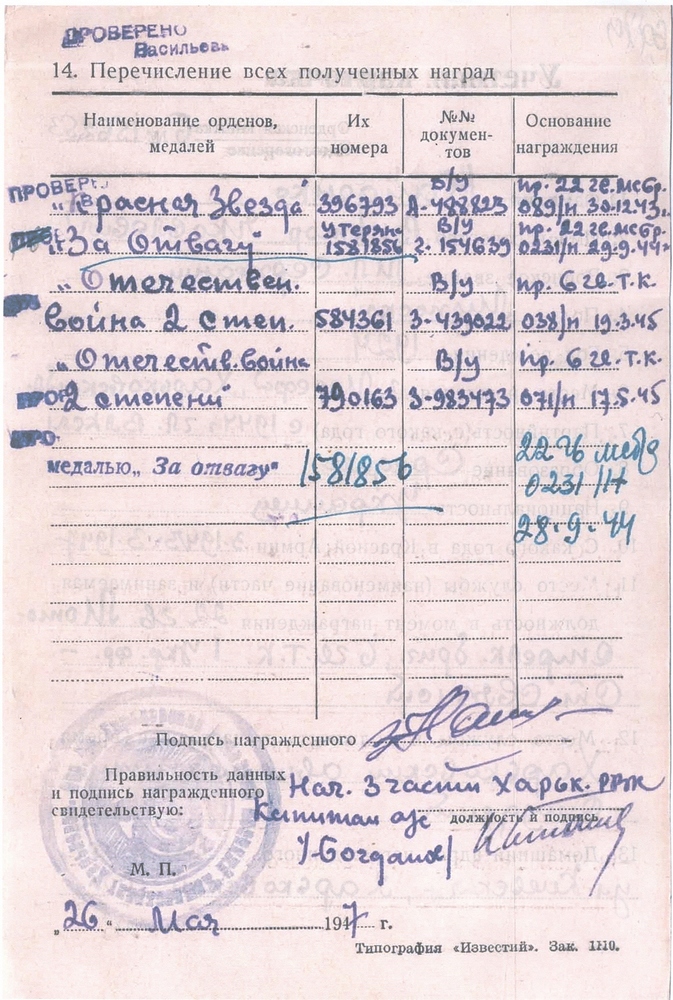 ПРОВЕРЕНО
Васильева
14. Перечисление всех полученных наград
Наименование орденов, медалей
Их номера
№№ докумен- тов
Основание награждения
ПРОВЕР
В/у пр. 22 гв. мсбр.
„Красная Звезда" 396793 А-488823 089/н 30.12.43.
утерян В/у пр. 22 гв. мсбр.
„За Отвагу" 1581856 г-154639 0231/н 29.9.44
„Отечествен. В/у пр. 6 гв. т.к.
война 2 степ. 584361 З-439022 038/н 19.3.45
„Отечеств. война В/у пр. 6 гв. т.к.
ПРОВ
2 степени" 790163 З-983473 071/н 17.5.45
ПРО
медалью „За отвагу" 1581856 22 гв мсбр
0231/н
28.9.44
Подпись награжденного
Правильность данных
и подпись награжденного
свидетельствую:
Нач. 3 части Харьк. РВК
Капитан а/с
должность и подпись
/Богданов/
М. П.
„26" Мая 1947 г.
Типография «Известий». Зак. 1110.